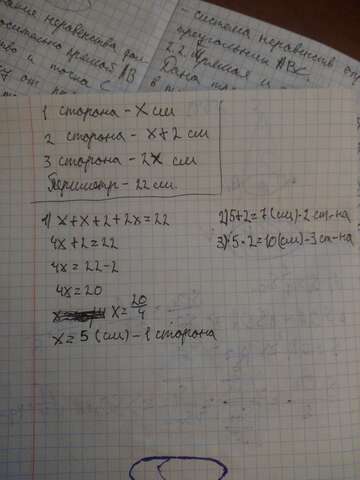 - система неравенств
треугольника ABC.
2.2. Прямая и
Дана
прямой AB
и точка C
1 сторона - x см
2 сторона - x+2 см
3 сторона - 2x см
Периметр - 22 см.
1) x+x+2+2x=22
4x+2=22
4x=22-2
4x=20
x=20/4
x=5 (см) - 1 сторона
2) 5+2=7 (см) - 2 ст-на
3) 5·2=10 (см) - 3 ст-на